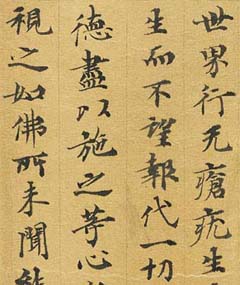 世界行无瘡疣生
生而不望報代一切
德盡以施之等心
視之如佛所未聞